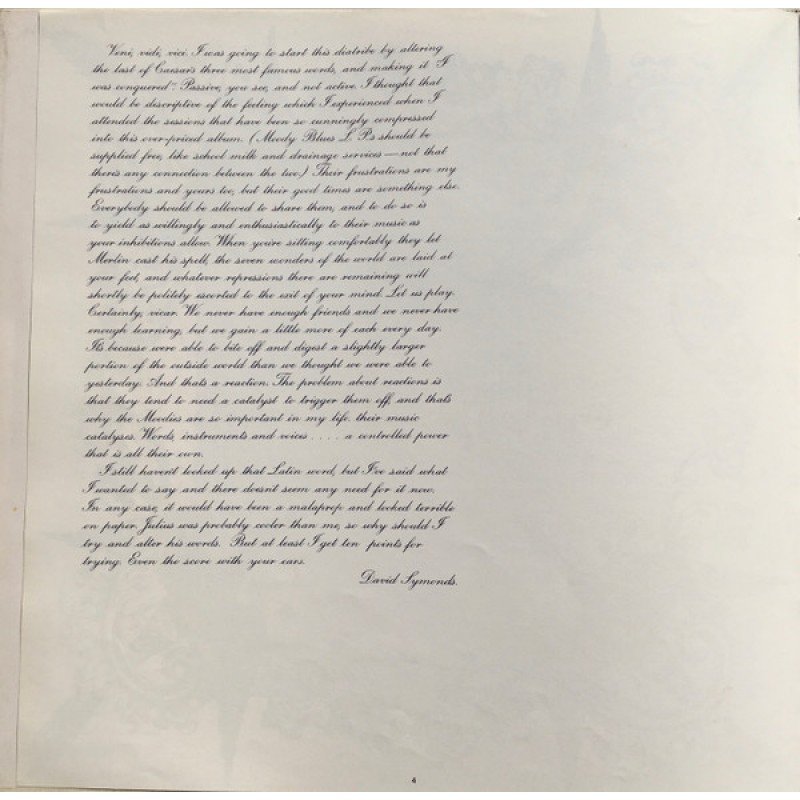 Veni, vidi, vici. I was going to start this diatribe by altering
the last of Caesar's three most famous words, and making it "I
was conquered". Passive, you see, and not active. I thought that
would be descriptive of the feeling which I experienced when I
attended the sessions that have been so cunningly compressed
into this over-priced album. (Moody Blues L.P.s should be
supplied free, like school milk and drainage services — not that
there's any connection between the two.) Their frustrations are my
frustrations and yours too, but their good times are something else.
Everybody should be allowed to share them, and to do so is
to yield as willingly and enthusiastically to their music as
your inhibitions allow. When you're sitting comfortably they let
Merlin cast his spell, the seven wonders of the world are laid at
your feet, and whatever repressions there are remaining will
shortly be politely escorted to the exit of your mind. Let us play.
Certainly, vicar. We never have enough friends and we never have
enough learning, but we gain a little more of each every day.
It's because we're able to bite off and digest a slightly larger
portion of the outside world than we thought we were able to
yesterday. And that's a reaction. The problem about reactions is
that they tend to need a catalyst to trigger them off, and that's
why the Moodies are so important in my life. their music
catalyses. Words, instruments and voices . . . . a controlled power
that is all their own.
I still haven't looked up that Latin word, but I've said what
I wanted to say and there doesn't seem any need for it now.
In any case, it would have been a malaprop and looked terrible
on paper. Julius was probably cooler than me, so why should I
try and alter his words. But at least I get ten points for
trying. Even the score with your ears.
David Symonds.
4